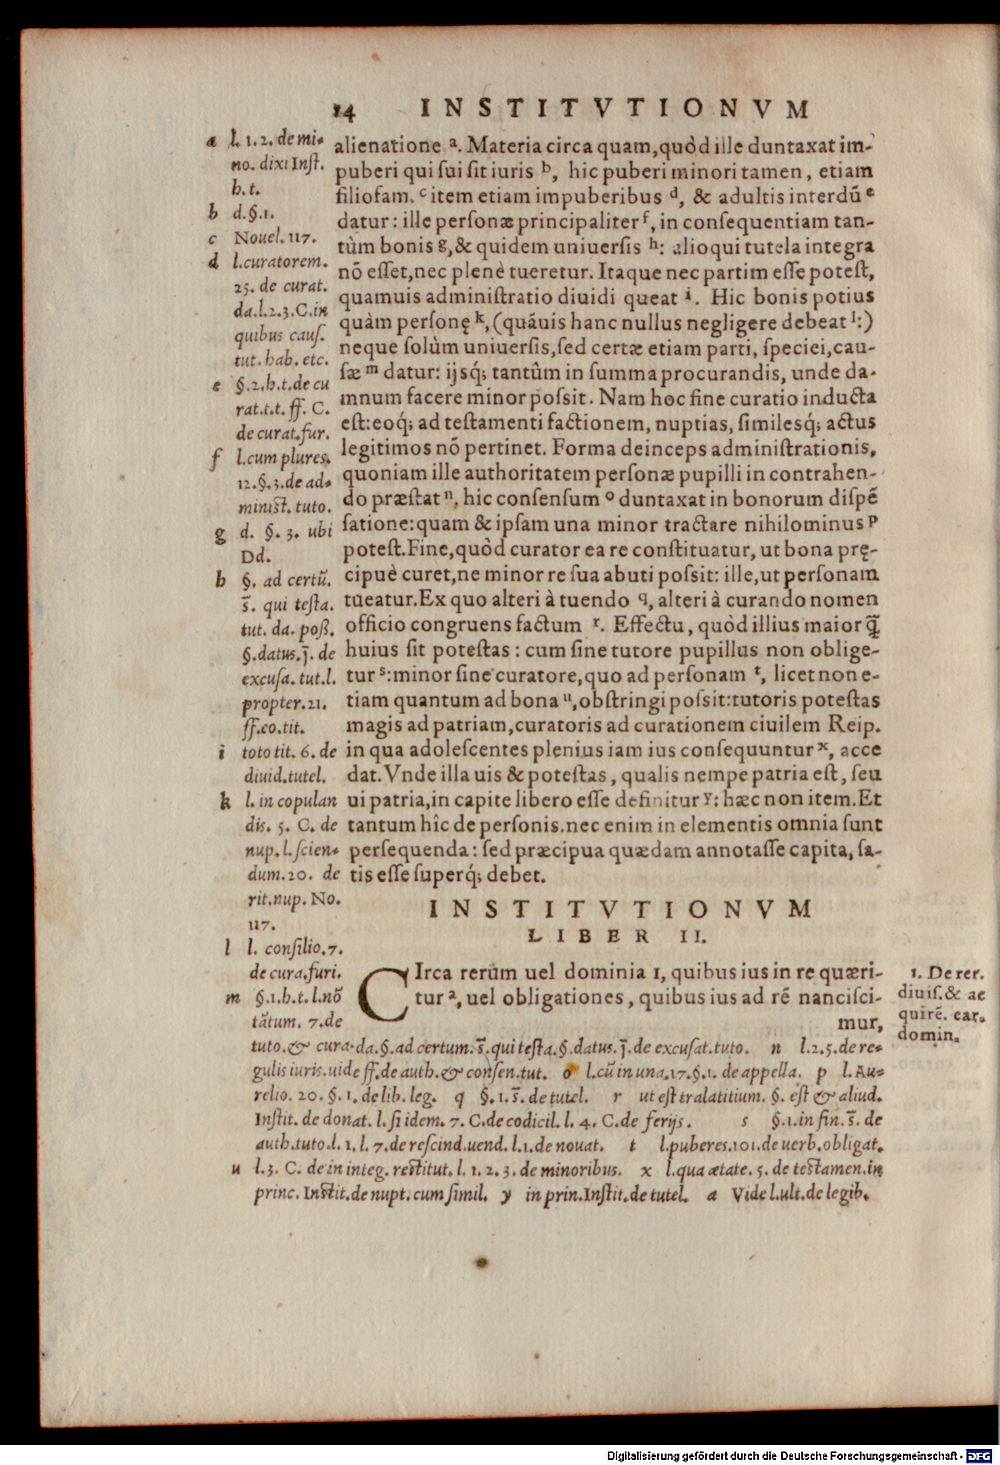 14 INSTITVTIONVM
alienatione ᵃ. Materia circa quam, quòd ille duntaxat im-
puberi qui sui sit iuris ᵇ, hic puberi minori tamen, etiam
filiofam. ᶜ item etiam impuberibus ᵈ, & adultis interdū ᵉ
datur: ille personæ principaliter ᶠ, in consequentiam tan-
tùm bonis ᵍ, & quidem uniuersis ʰ: alioqui tutela integra
nō esset, nec plenè tueretur. Itaque nec partim esse potest,
quamuis administratio diuidi queat ⁱ. Hic bonis potius
quàm personę ᵏ, (quáuis hanc nullus negligere debeat ˡ:)
neque solùm uniuersis, sed certæ etiam parti, speciei, cau-
sæ ᵐ datur: ijsq́; tantùm in summa procurandis, unde da-
mnum facere minor possit. Nam hoc fine curatio inducta
est: eoq́; ad testamenti factionem, nuptias, similesq́; actus
legitimos nō pertinet. Forma deinceps administrationis,
quoniam ille authoritatem personæ pupilli in contrahen-
do præstat ⁿ, hic consensum ᵒ duntaxat in bonorum dispē
satione: quam & ipsam una minor tractare nihilominus ᵖ
potest. Fine, quòd curator ea re constituatur, ut bona prę-
cipuè curet, ne minor re sua abuti possit: ille, ut personam
tueatur. Ex quo alteri à tuendo q, alteri à curando nomen
officio congruens factum ʳ. Effectu, quòd illius maior q̃
huius sit potestas: cum sine tutore pupillus non oblige-
tur ˢ: minor sine curatore, quo ad personam ᵗ, licet non e-
tiam quantum ad bona ᵘ, obstringi possit: tutoris potestas
magis ad patriam, curatoris ad curationem ciuilem Reip.
in qua adolescentes plenius iam ius consequuntur ˣ, acce
dat. Vnde illa uis & potestas, qualis nempe patria est, seu
ui patria, in capite libero esse definitur ʸ: hæc non item. Et
tantum hîc de personis. nec enim in elementis omnia sunt
persequenda: sed præcipua quædam annotasse capita, sa-
tis esse superq́; debet.
a l. 1. 2. de mi-
no. dixi Inst.
h. t.
b d. §. 1.
c Nouel. 117.
d l. curatorem.
25. de curat.
da. l. 2. 3. C. in
quibus caus.
tut. hab. etc.
e §. 2. h. t. de cu
rat. t. t. ff. C.
de curat. fur.
f l. cum plures.
12. §. 3. de ad-
minist. tuto.
g d. §. 3. ubi
Dd.
h §. ad certū.
s̄. qui testa.
tut. da. poß.
§. datus. j̄. de
excusa. tut. l.
propter. 21.
ff. eo. tit.
i toto tit. 6. de
diuid. tutel.
k l. in copulan
dis. 5. C. de
nup. l. scien-
dum. 20. de
rit. nup. No.
117.
l l. consilio. 7.
de cura. furi.
m §. 1. h. t. l. nō
tātum. 7. de
INSTITVTIONVM
LIBER II.
CIrca rerum uel dominia 1, quibus ius in re quæri-
tur ᵃ, uel obligationes, quibus ius ad rē nancisci-
mur,
1. De rer.
diuis. & ac
quirē. ear.
domin.
tuto. & cura. da. §. ad certum. s̄. qui testa. §. datus. j̄. de excusat. tuto. n l. 2. 5. de re-
gulis iuris. uide ff. de auth. & consen. tut. o l. cū in una. 17. §. 1. de appella. p l. Au-
relio. 20. §. 1. de lib. leg. q §. 1. s̄. de tutel. r ut est tralatitium. §. est & aliud.
Instit. de donat. l. si idem. 7. C. de codicil. l. 4. C. de ferijs. s §. 1. in fin. s̄. de
auth. tuto. l. 1. l. 7. de rescind. uend. l. 1. de nouat. t l. puberes. 101. de uerb. obligat.
u l. 3. C. de in integ. restitut. l. 1. 2. 3. de minoribus. x l. qua ætate. 5. de testamen. in
princ. Instit. de nupt. cum simil. y in prin. Instit. de tutel. a Vide l. ult. de legib.
Digitalisierung gefördert durch die Deutsche Forschungsgemeinschaft - DFG